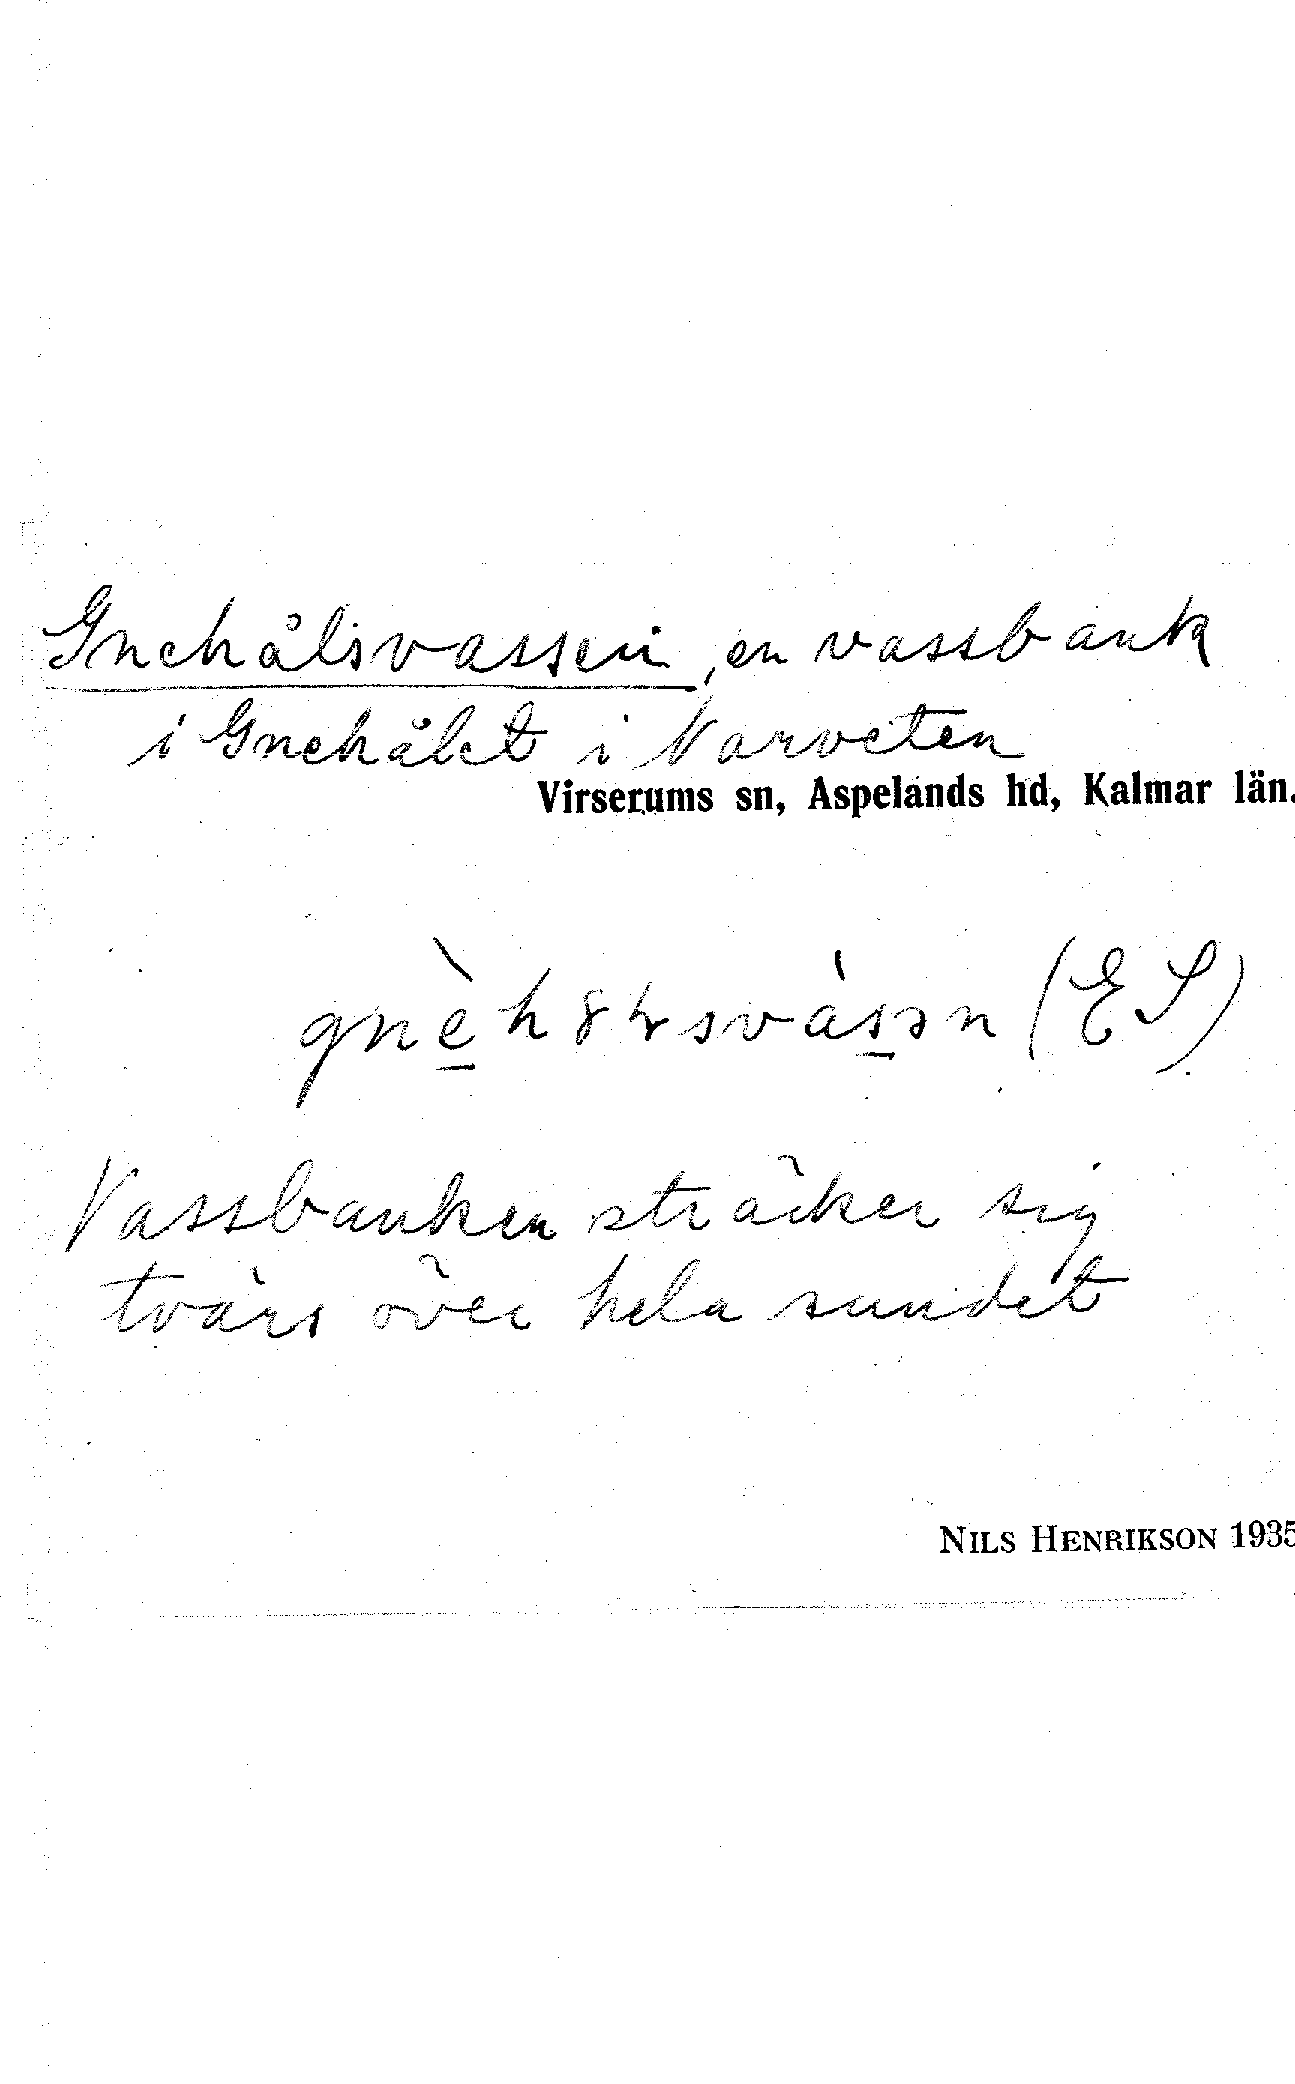 Gnehålsvassen, en vassbank
i Gnehålet i Narveten
Virserums sn, Aspelands hd, Kalmar län.
(ES)
Vassbanken sträcker sig
tvärs över hela sundet
NILS HENRIKSON 1935